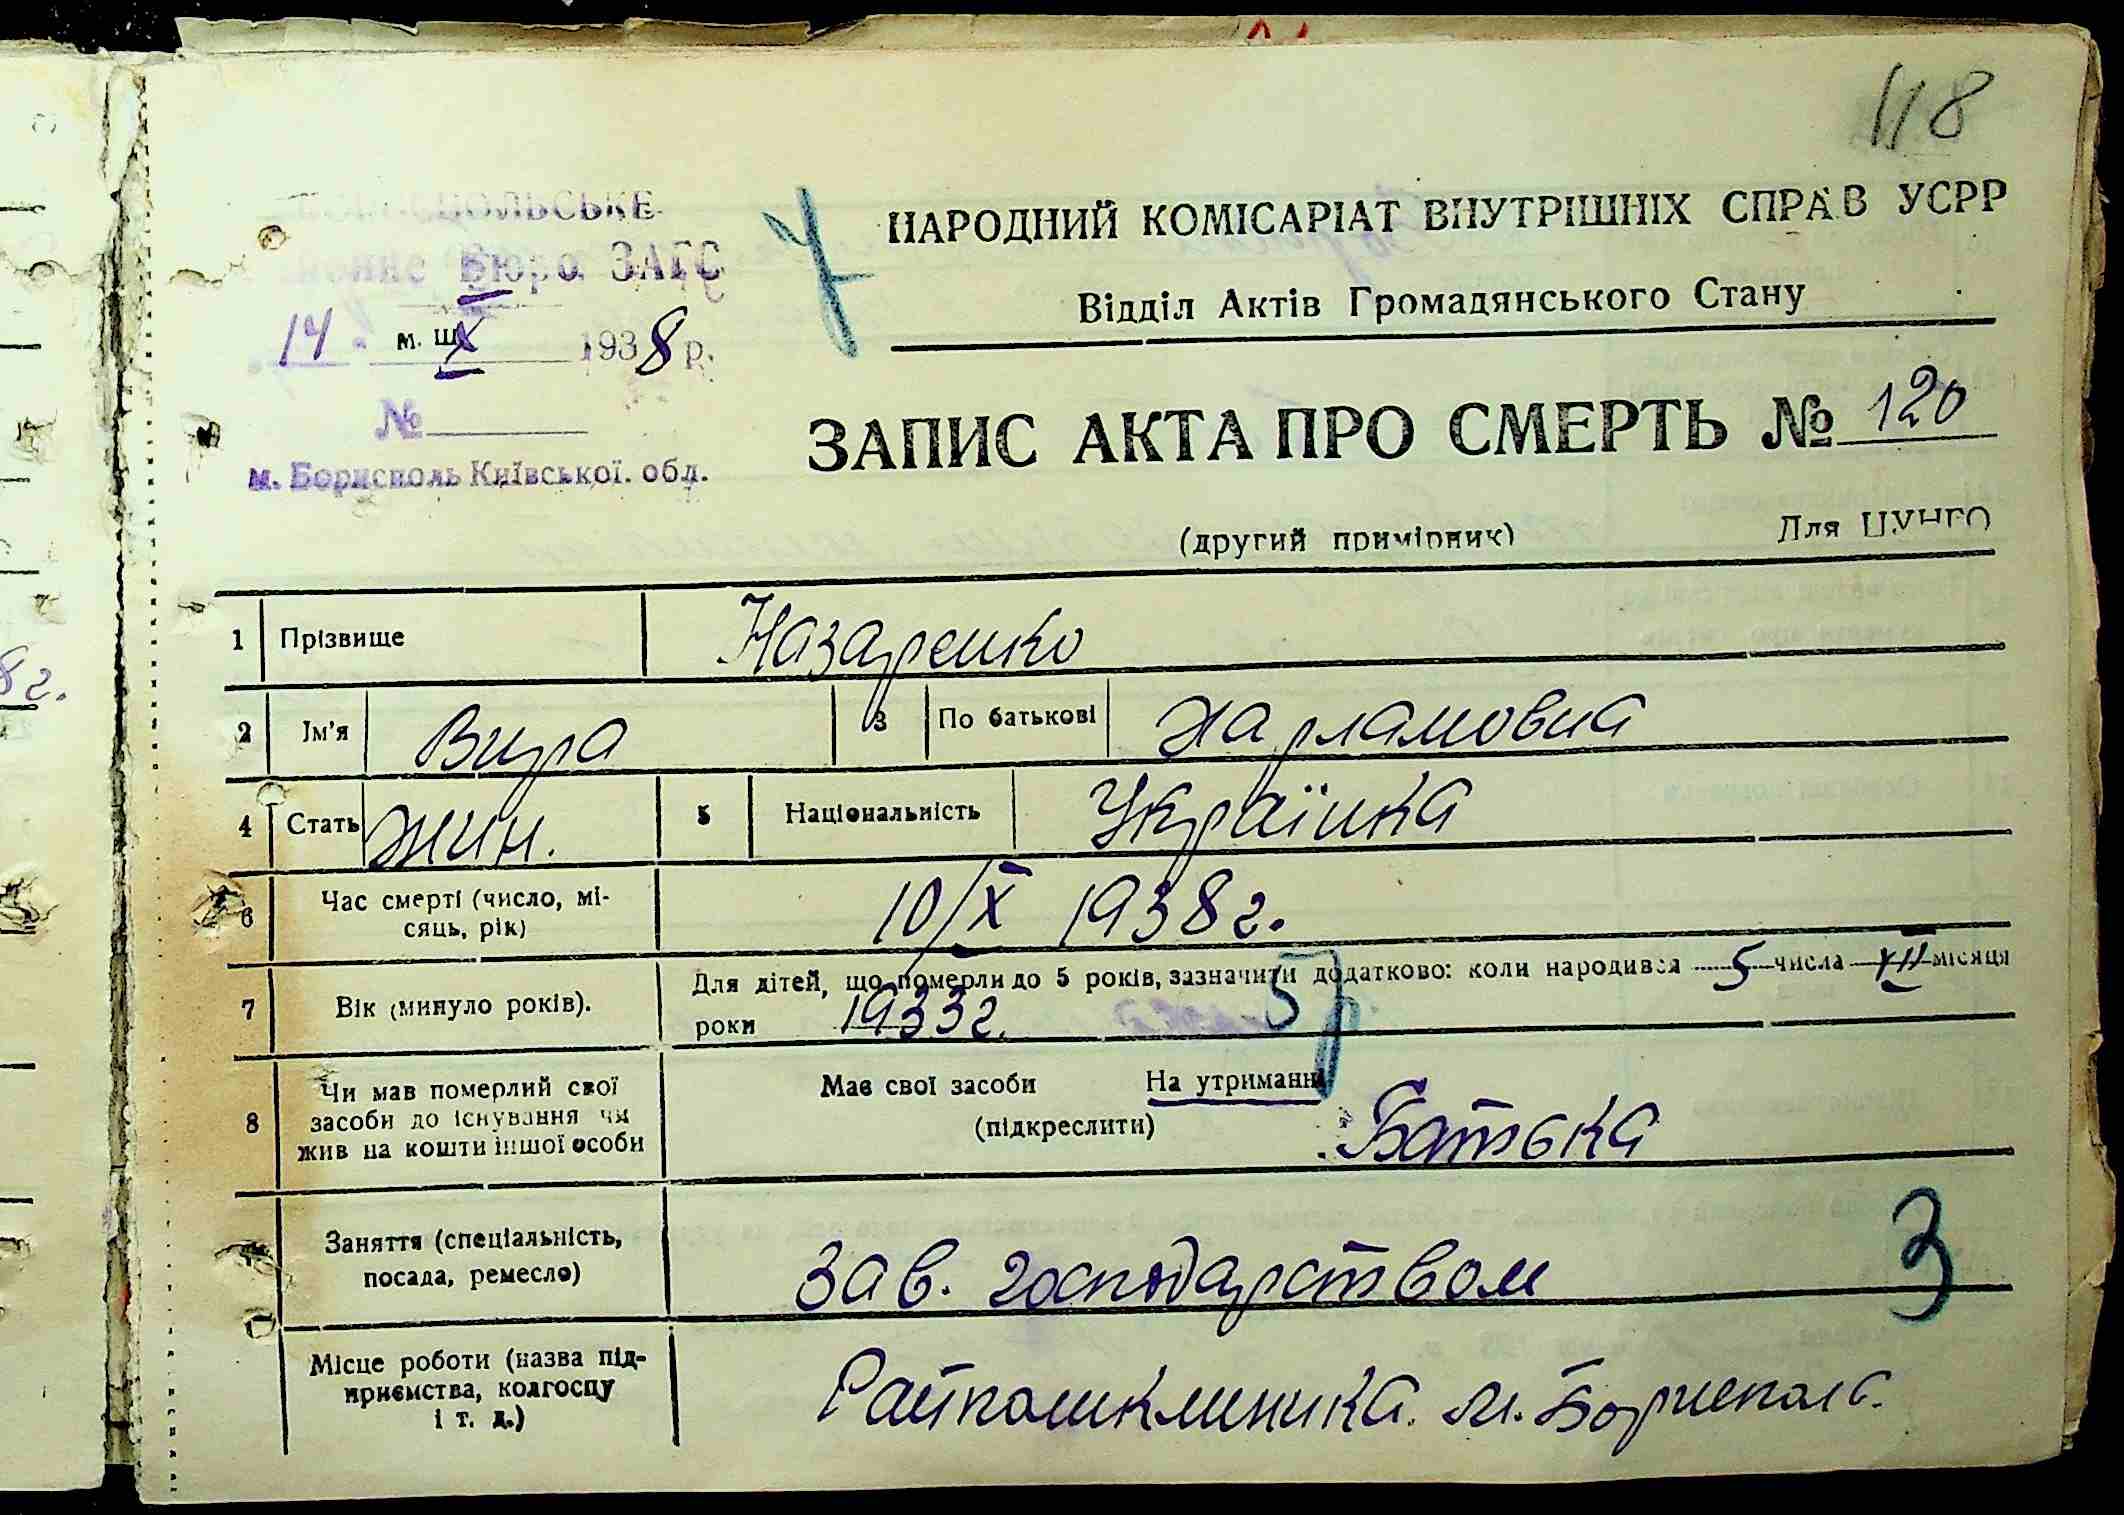 118
НАРОДНИЙ КОМІСАРІАТ ВНУТРІШНІХ СПРАВ УСРР
Відділ Актів Громадянського Стану
Бюро ЗАГС
14 м. ІХ 1938 р.
№
м. Бориспіль Київської. обл.
ЗАПИС АКТА ПРО СМЕРТЬ № 120
(другий примірник) Для ЦУНГО
1 Прізвище Назаренко
2 Ім'я Вира 3 По батькові Харламовна
4 Стать жин. 5 Національність Українка
6 Час смерті (число, мі-
сяць, рік) 10/X 1938 г.
7 Вік (минуло років). Для дітей, що померли до 5 років, зазначити додатково: коли народився 5 числа VII місяця
роки 1933 г. 5 р
8 Чи мав померлий свої
засоби до існування чи
жив на кошти іншої особи
Має свої засоби На утриманні
(підкреслити) Батька
Заняття (спеціальність,
посада, ремесло) Зав. господарством 3
Місце роботи (назва під-
приємства, колгоспу
і т. д.) Райполикліника. м. Борисполя.
8 г.